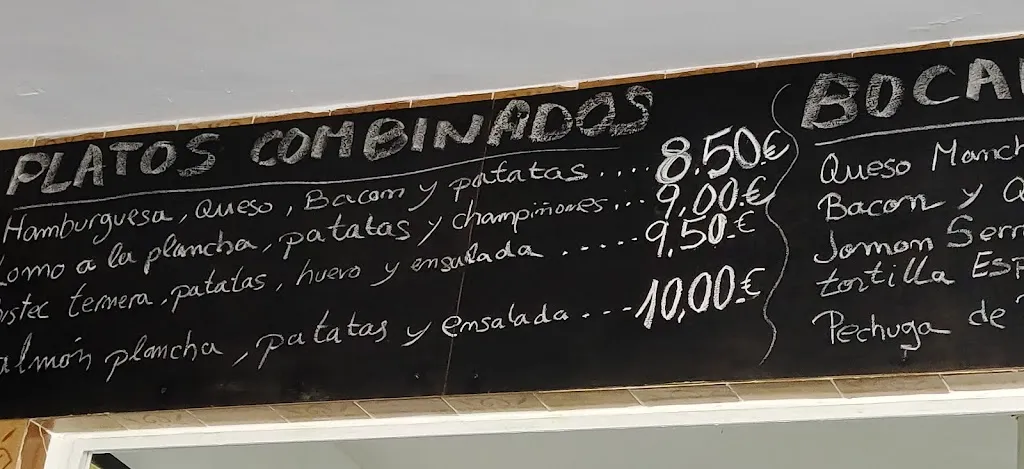 PLATOS COMBINADOS
Hamburguesa, Queso, Bacon y patatas .... 8.50€
Lomo a la plancha, patatas y champiñones... 9,00€
Bistec ternera, patatas, huevo y ensalada ..... 9,50€
Salmón plancha, patatas y ensalada .... 10,00€
BOCA
Queso Manch
Bacon y Q
Jamon Serr
tortilla ESP
Pechuga de